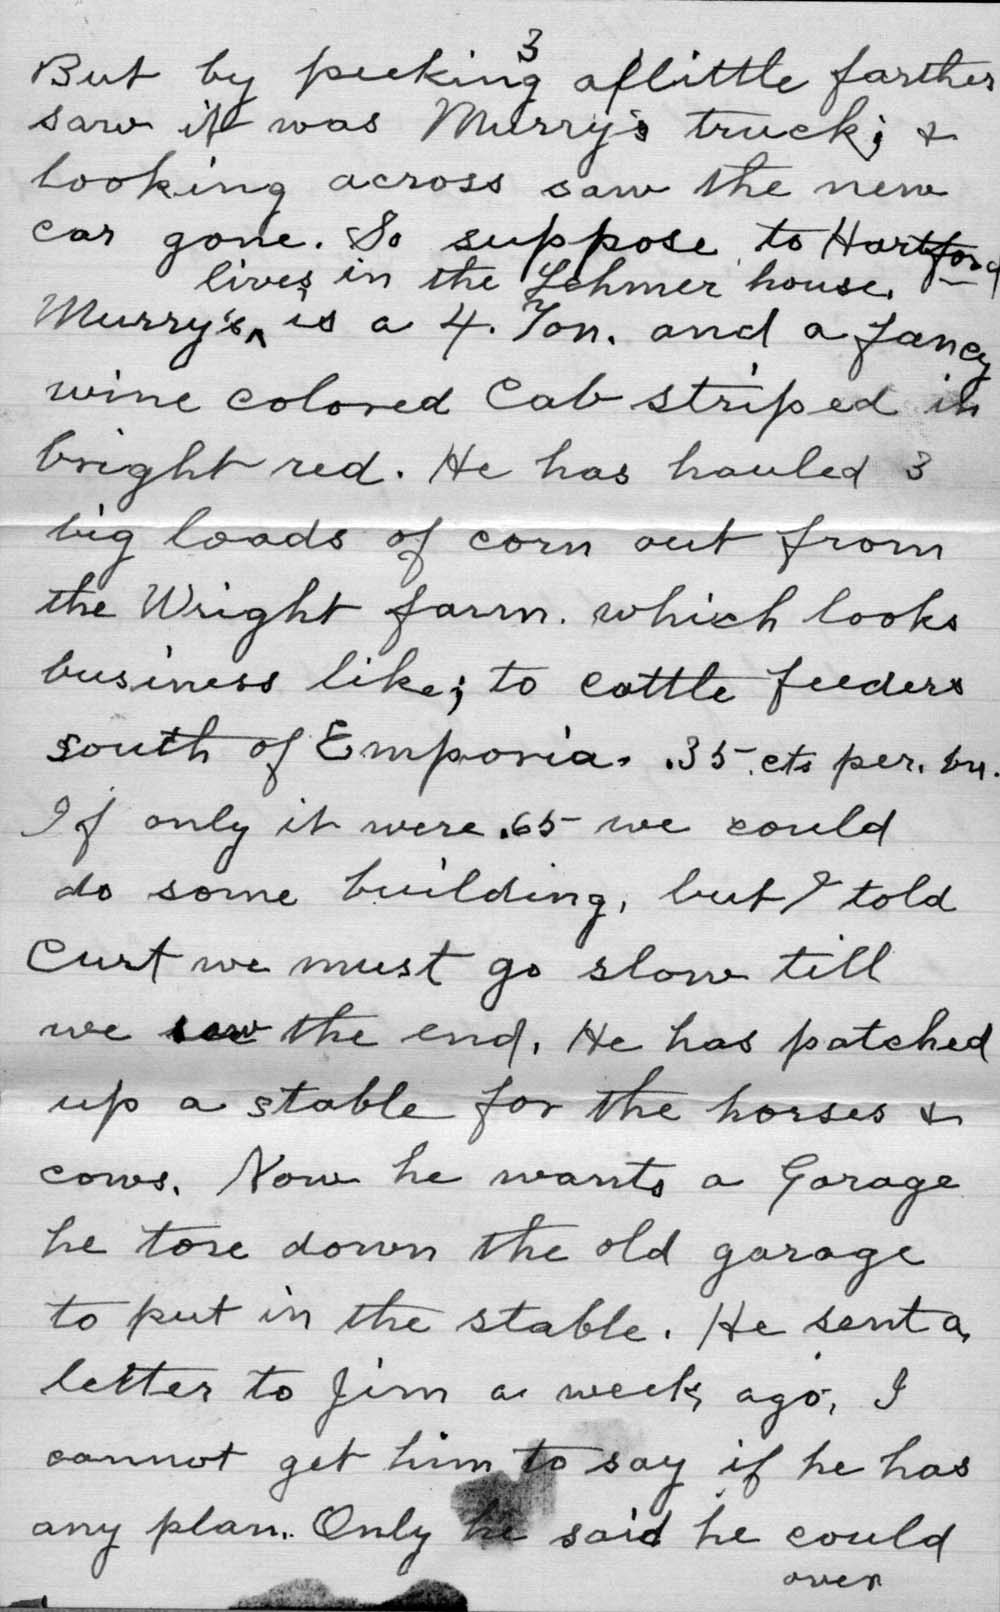 3
But by peeking a little farther
saw it was Murry's truck; &
looking across saw the new
car gone. So suppose to Hartford
lives in the Lehmer house.
Murry's ^ is a 4. Ton. and a fancy
wine colored Cab striped in
bright red. He has hauled 3
big loads of corn out from
the Wright farm. which looks
business like; to cattle feeders
south of Emporia. .35 cts per. bu.
If only it were .65 we could
do some building, but I told
Curt we must go slow till
we see the end. He has patched
up a stable for the horses &
cows. Now he wants a Garage
he tore down the old garage
to put in the stable. He sent a
letter to Jim a week ago, I
cannot get him to say if he has
any plan. Only he said he could
over